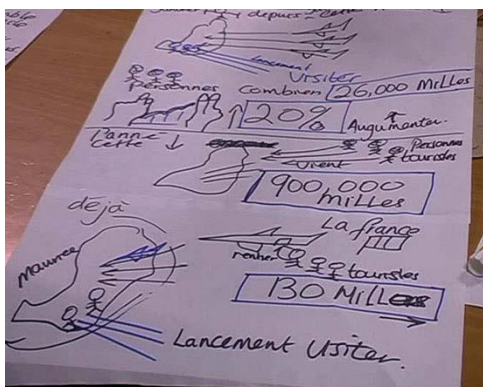 depuis cette
Lancement
Visiter
personnes
Combien 26,000 Milles
20%
Augumenter.
L'anné
cette
Personnes
tourisles
Vrent
900,000
milles
déjà
La france
Maurice
renher
tourisles
130 Milles
Lancement Usiter.